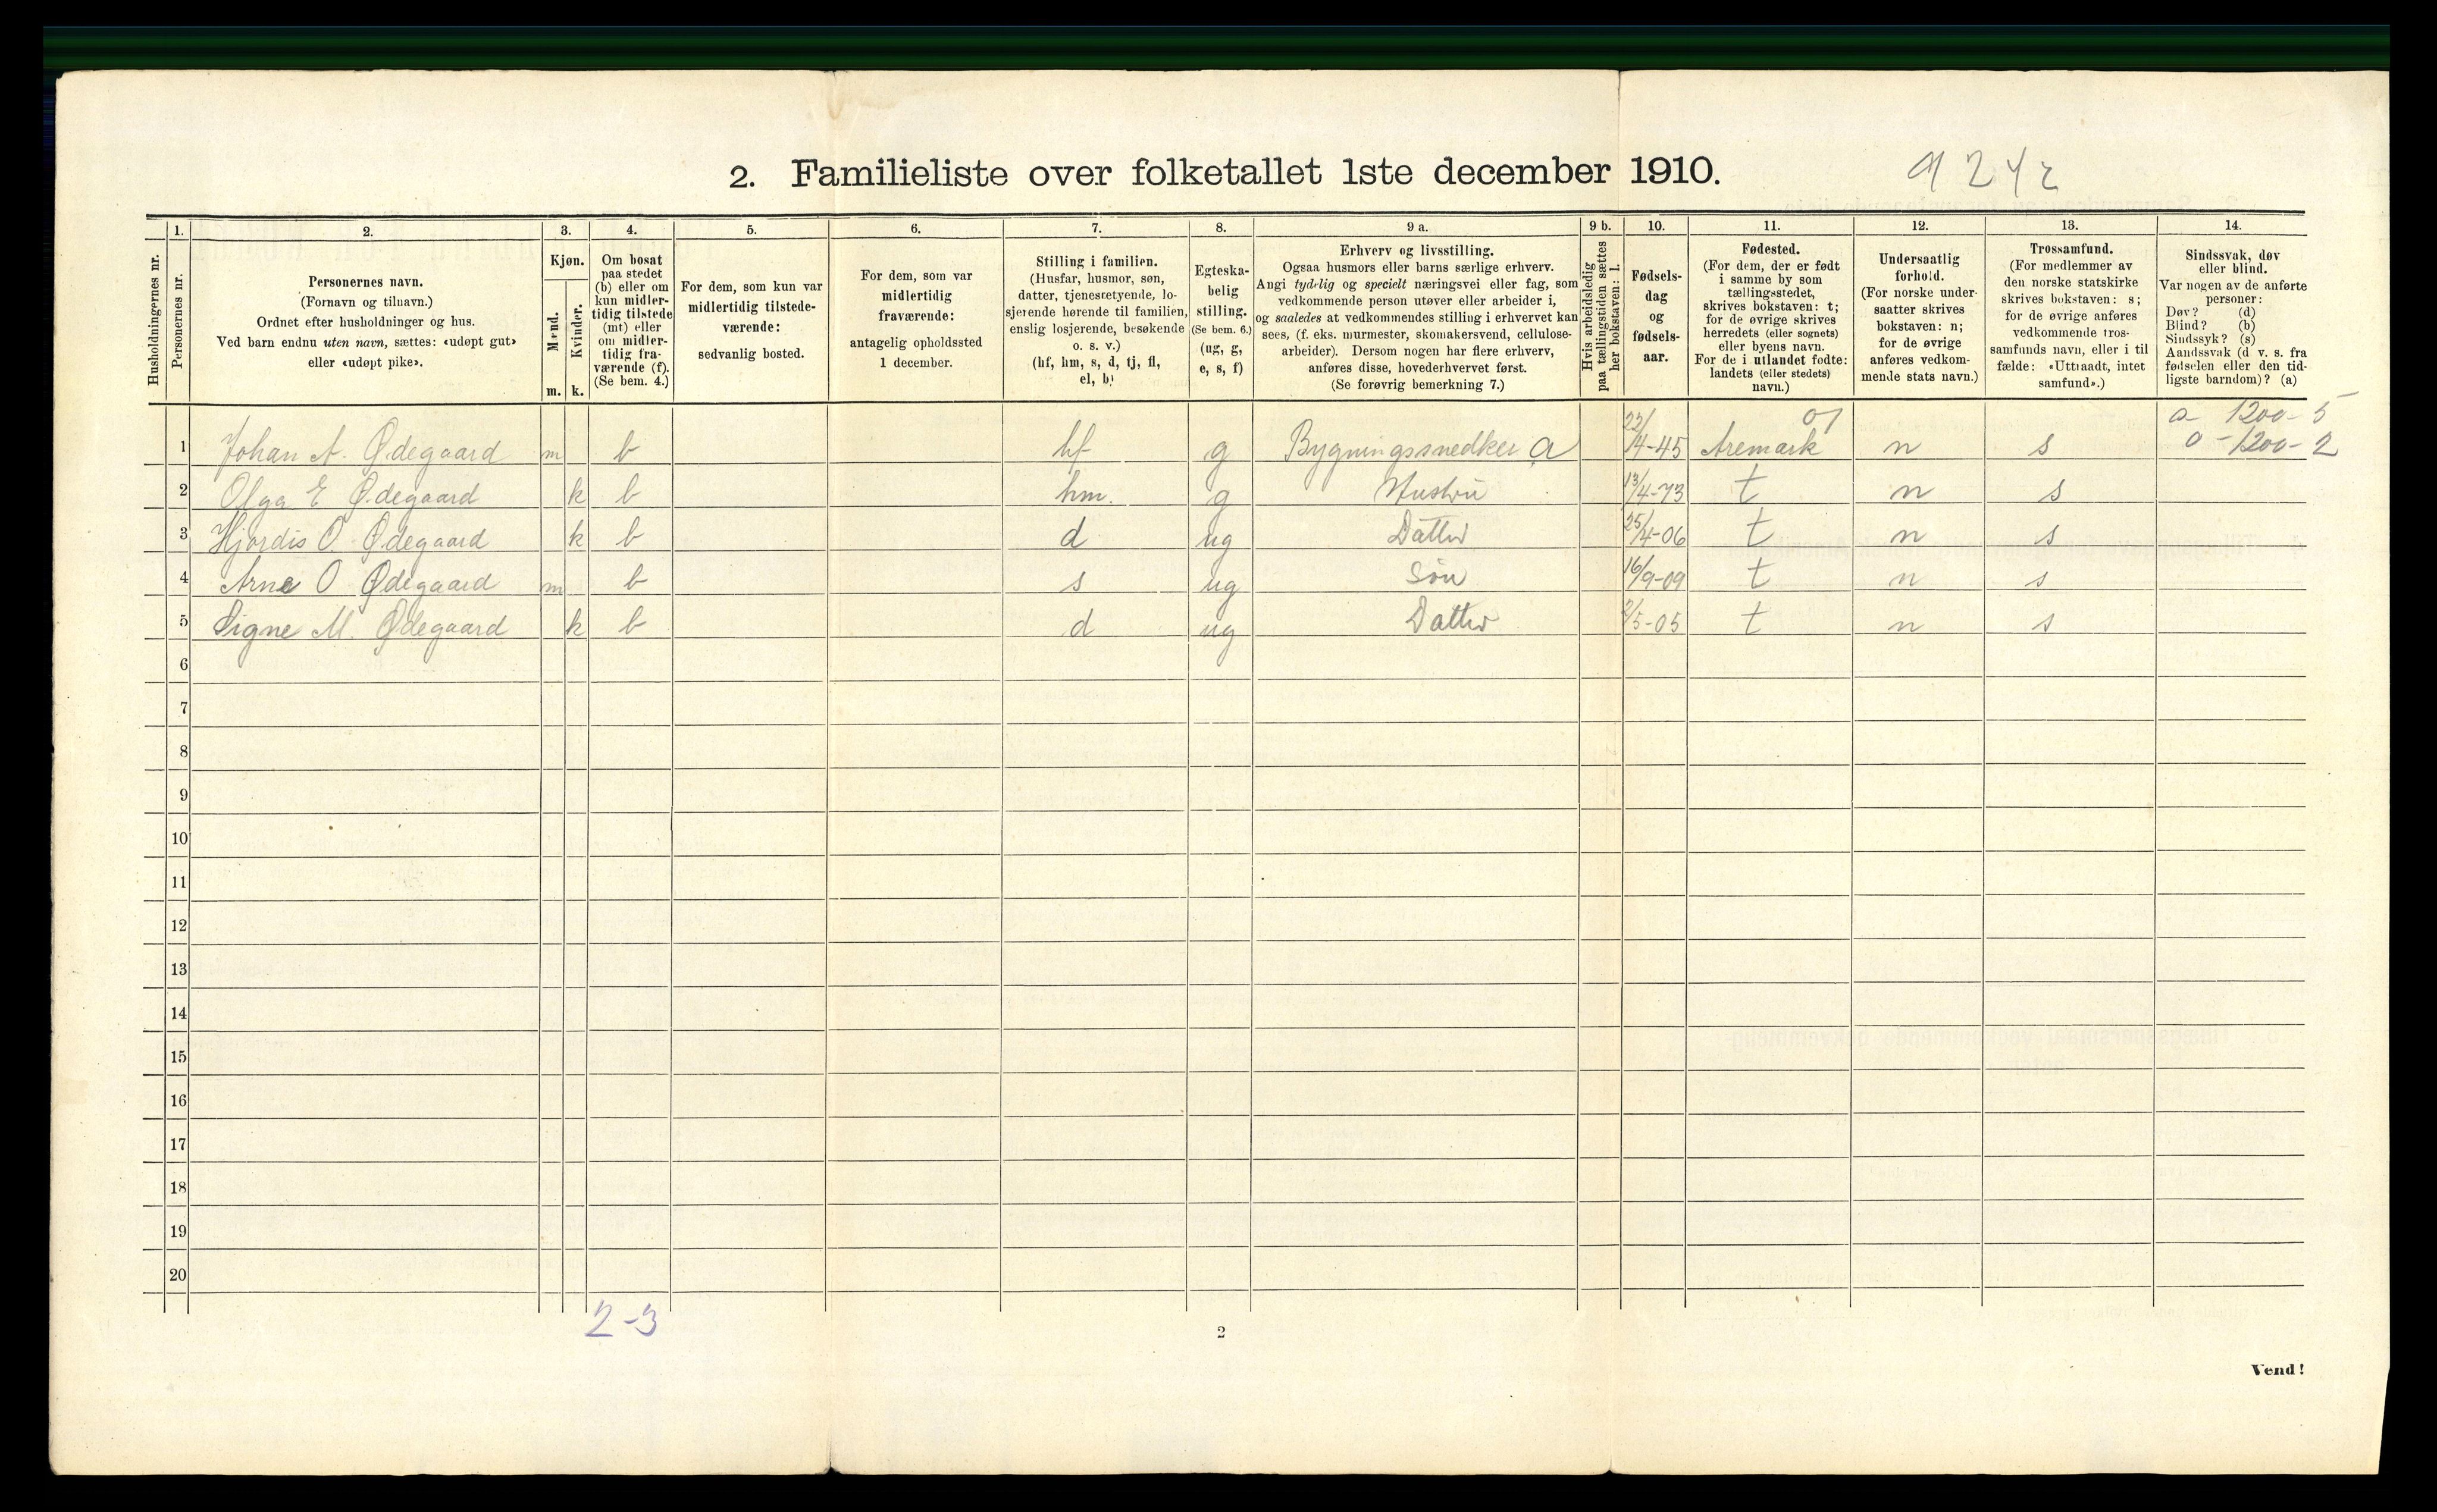 2. Familieliste over folketallet 1ste december 1910.
1. 2. 3. 4. 5. 6. 7. 8. 9 a. 9 b. 10. 11. 12. 13. 14.
Husholdningernes nr.
Personernes nr.
Personernes navn.
(Fornavn og tilnavn.)
Ordnet efter husholdninger og hus.
Ved barn endnu uten navn, sættes: «udøpt gut»
eller «udøpt pike».
Kjøn.
Mænd.
Kvinder.
m. k.
Om bosat
paa stedet
(b) eller om
kun midler-
tidig tilstede
(mt) eller
om midler-
tidig fra-
værende (f).
(Se bem. 4.)
For dem, som kun var
midlertidig tilstede-
værende:
sedvanlig bosted.
For dem, som var
midlertidig
fraværende:
antagelig opholdssted
1 december.
Stilling i familien.
(Husfar, husmor, søn,
datter, tjenestetyende, lo-
sjerende hørende til familien,
enslig losjerende, besøkende
o. s. v.)
(hf, hm, s, d, tj, fl,
el, b)
Egteska-
belig
stilling.
(Se bem. 6.)
(ug, g,
e, s, f)
Erhverv og livsstilling.
Ogsaa husmors eller barns særlige erhverv.
Angi tydelig og specielt næringsvei eller fag, som
vedkommende person utøver eller arbeider i,
og saaledes at vedkommendes stilling i erhvervet kan
sees, (f. eks. murmester, skomakersvend, cellulose-
arbeider). Dersom nogen har flere erhverv,
anføres disse, hovederhvervet først.
(Se forøvrig bemerkning 7.)
Hvis arbeidsledig
paa tællingstiden sættes
her bokstaven: l.
Fødsels-
dag
og
fødsels-
aar.
Fødested.
(For dem, der er født
i samme by som
tællingsstedet,
skrives bokstaven: t;
for de øvrige skrives
herredets (eller sognets)
eller byens navn.
For de i utlandet fødte:
landets (eller stedets)
navn.)
Undersaatlig
forhold.
(For norske under-
saatter skrives
bokstaven: n;
for de øvrige
anføres vedkom-
mende stats navn.)
Trossamfund.
(For medlemmer av
den norske statskirke
skrives bokstaven: s;
for de øvrige anføres
vedkommende tros-
samfunds navn, eller i til
fælde: «Uttraadt, intet
samfund».)
Sindssvak, døv
eller blind.
Var nogen av de anførte
personer:
Døv? (d)
Blind? (b)
Sindssyk? (s)
Aandssvak (d v. s. fra
fødselen eller den tid-
ligste barndom)? (a)
01 a- 1200-5
1 Johan A. Ødegaard m b hf g Bygningssnedker a 22/4-45 Aremark n s 0-1200-2
2 Olga E Ødegaard k b hm. g Hustru 13/4-73 t n s
3 Hjordis O. Ødegaard k b d ug Datter 25/4-06 t n s
4 Arne O Ødegaard m b s ug Søn 16/9-09 t n s
5 Signe M. Ødegaard k b d ug Datter 2/5-05 t n s
6
7
8
9
10
11
12
13
14
15
16
17
18
19
20
2-3
2
Vend!